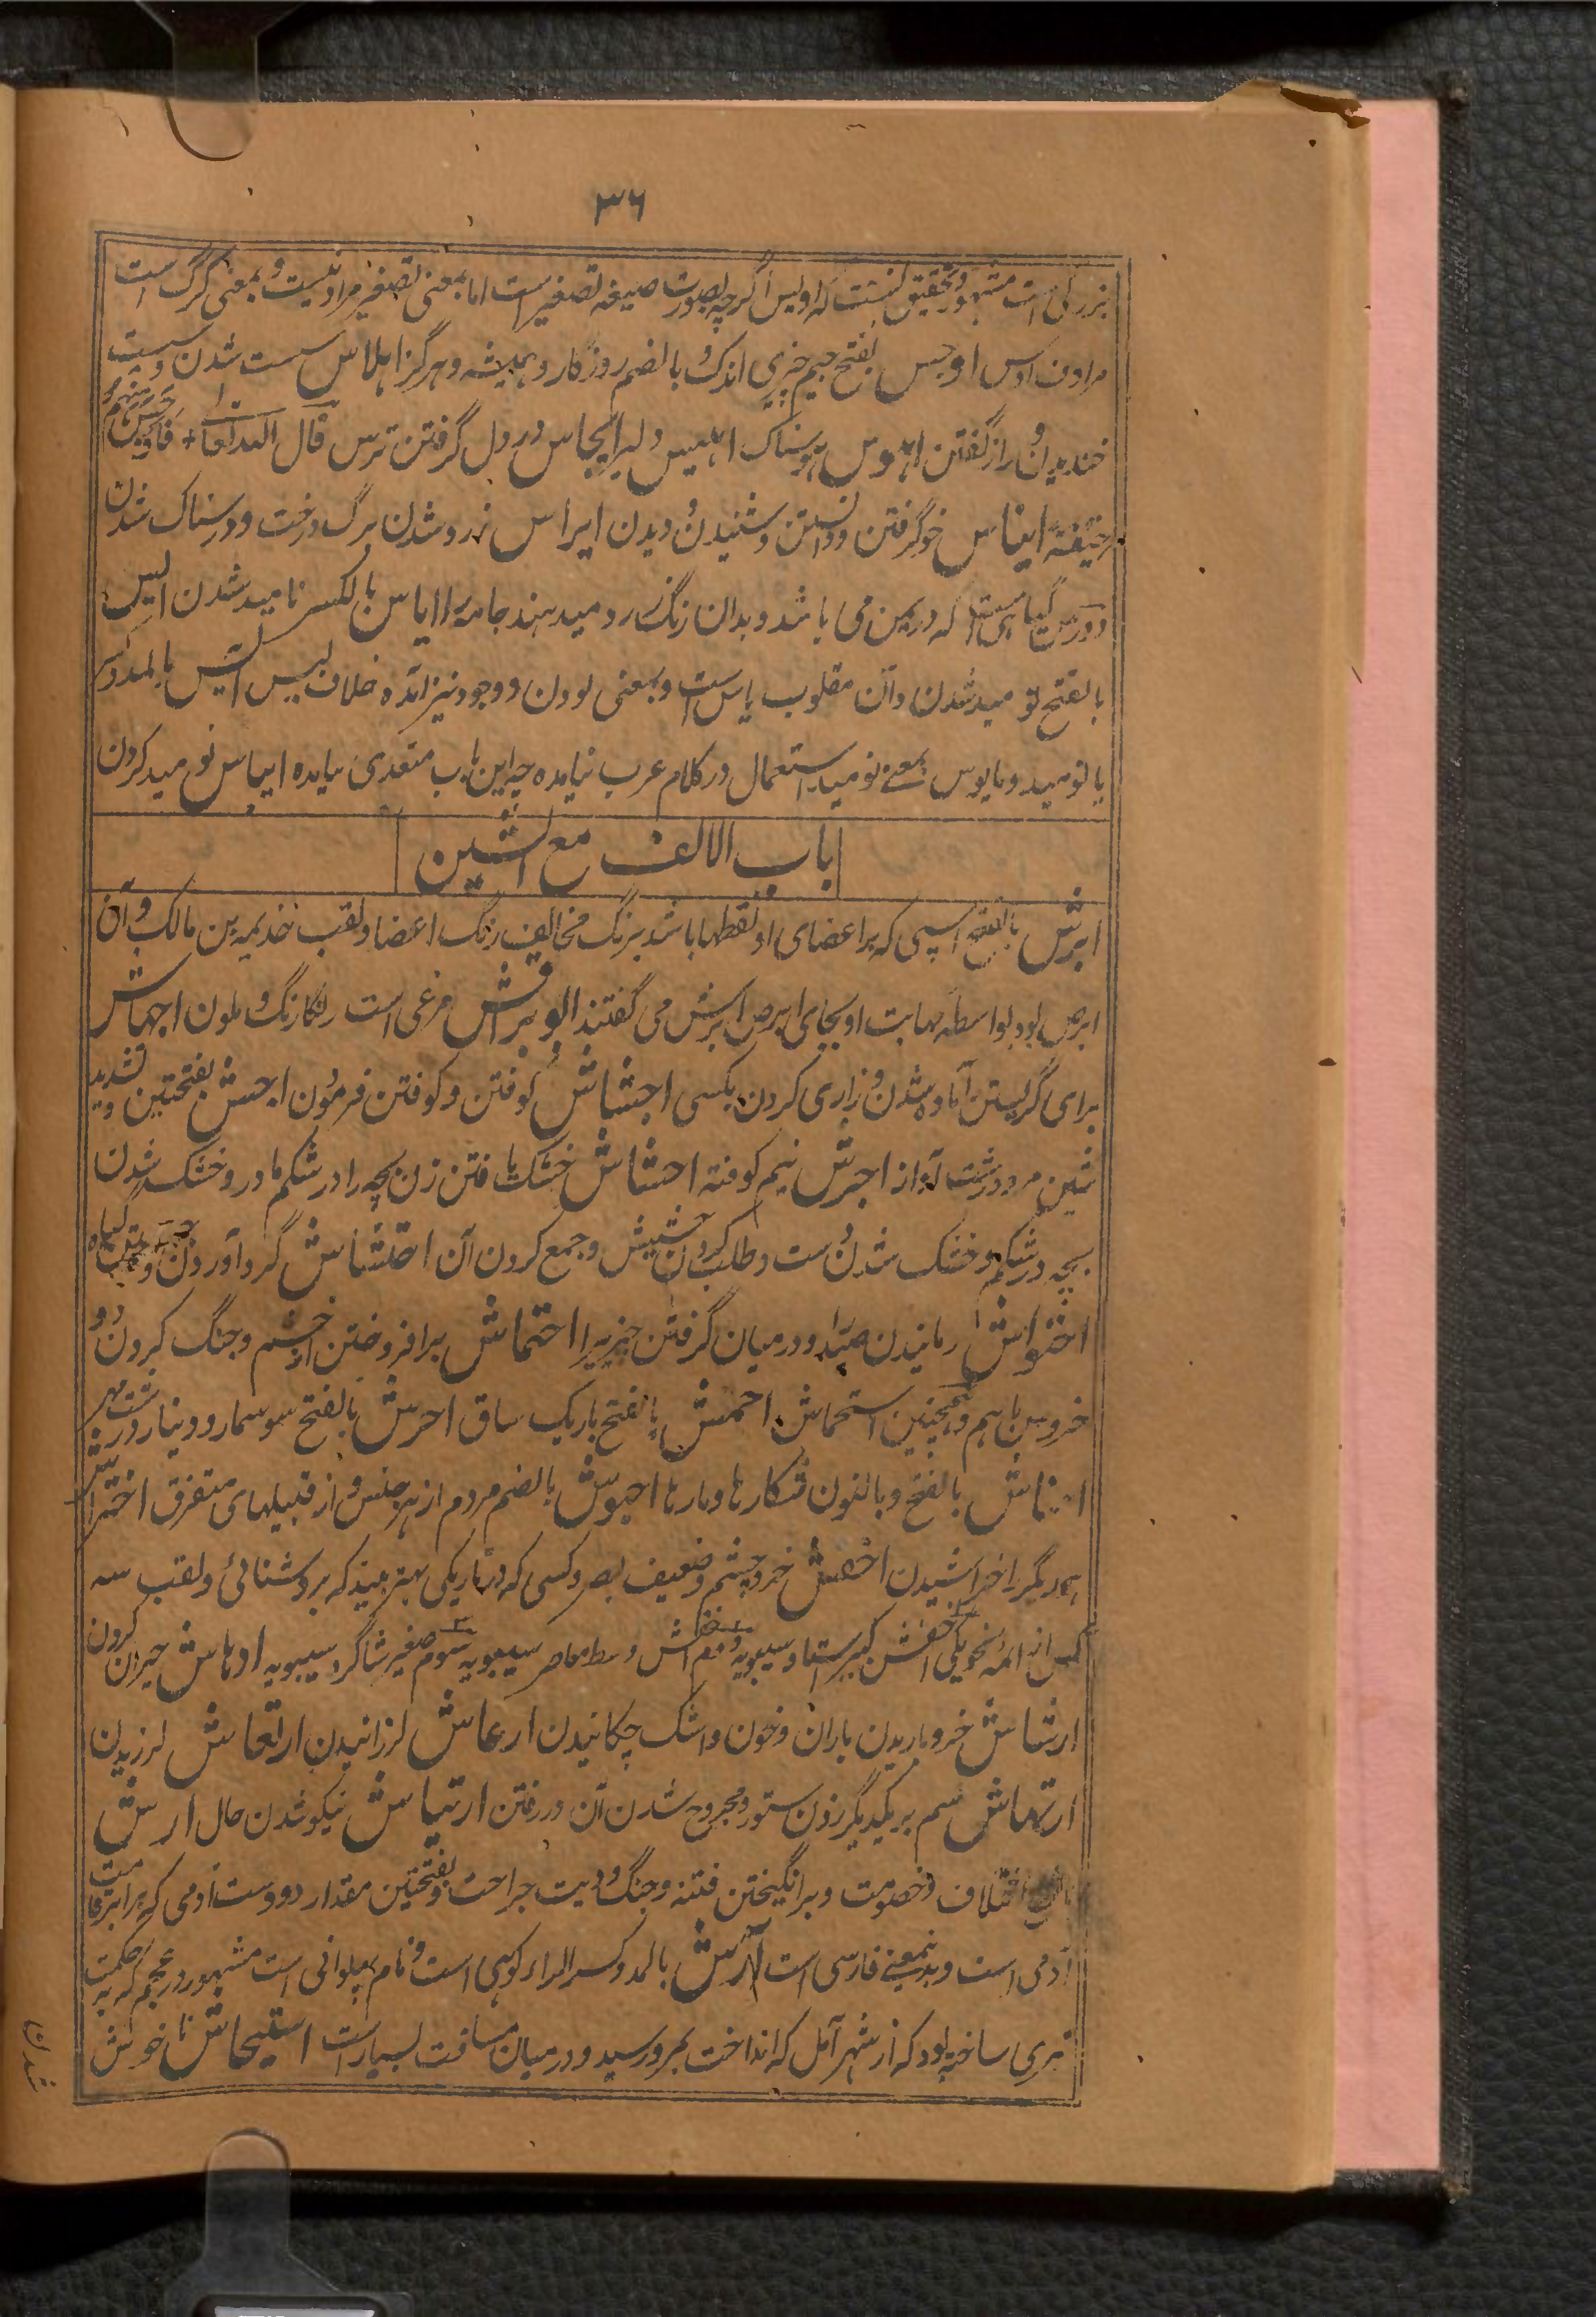 ۳۶
بزرگی است مشهور و تحقیق آنست که اویس اگرچه بصورت صیغه تصغیر است اما بمعنی تصغیر مراد نیست و بمعنی گرگ است
مرادف اوس اوجس بفتح جیم چیزی اندک و بالضم روزگار و همیشه و هرگز اهلاس سست شدن و پست
خندیدن و راز گفتن اهوس هوسناک اهیس دلیر ایجاس در دل گرفتن ترس قال الله تعالی فاوجس منهم
خیفة ایناس خو گرفتن و دانستن و شنیدن و دیدن ایراس زرد شدن برگ درخت و ورسناک شدن
و ورس گیاهی است که در یمن می باشد و بدان رنگ زرد میدهند جامه را ایاس بالکسر نامید شدن ایس
بالفتح نومید شدن و آن مقلوب یاس است و بمعنی بودن و وجود نیز آمده خلاف لیس آئس بالمد و کسر
یا نومید و مایوس بمعنی نومید استعمال در کلام عرب نیامده چه این باب متعدی نیامده ایاس نومید کردن
باب الالف مع الشین
ابرش بالفتح اسپی که بر اعضای او نقطها باشد برنگ مخالف رنگ اعضا و لقب خذیمه بن مالک و آن
ابرص بود بواسطه مهابت او بجای ابرص ابرش می گفتند ابو براقش مرغی است رنگارنگ و ملون اجهاش
برای گریستن آماده شدن و زاری کردن بکسی اجشاش کوفتن و کوفتن فرمودن اجش بفتحتین و تشدید
شین مرد درشت آواز اجرش نیم کوفته احشاش خشک یافتن زن بچه را در شکم مادر و خشک شدن
بچه در شکم و خشک شدن دست و طلب کردن حشیش و جمع کردن آن احتشاش گرد آوردن و طلب گیاه
احتواش رمانیدن صید و در میان گرفتن چیزیرا احتماش برافروختن از خشم و جنگ کردن دو
خروس باهم و همچنین استحماش احمش بالفتح باریک ساق احرش بالفتح سوسمار و دینار درشت مهر
احناش بالفتح و بالنون شکارها و مارها احبوش بالضم مردم از هر جنس و از قبیلهای متفرق اختراش
همدیگر را خراشیدن اخفش خرد چشم و ضعیف بصر و کسی که در تاریکی بهتر بیند که بروشنائی و لقب سه
کس از ائمه نحو یکی اخفش کبیر استاد سیبویه دوم اخفش وسط معاصر سیبویه سوم صغیر شاگرد سیبویه ادهاش حیران کردن
ارشاش خرد باریدن باران و خون و اشک چکانیدن ارعاش لرزانیدن ارتعاش لرزیدن
ارتهاش سم بر یکدیگر زدن ستور و مجروح شدن آن در رفتن ارتیاش نیکو شدن حال ارش
بالفتح اختلاف و خصومت و برانگیختن فتنه و جنگ و دیت جراحت و بفتحتین مقدار دو دست آدمی که برابر قامت
آدمی است و بدینمعنی فارسی است آرش بالمد و کسر الراء کوهی است و نام پهلوانی است مشهور در عجم که به حکمت
تیری ساخته بود که از شهر آمل که انداخت بمرو رسید و در میان مسافت بسیار است استیحاش ناخوش
شدن